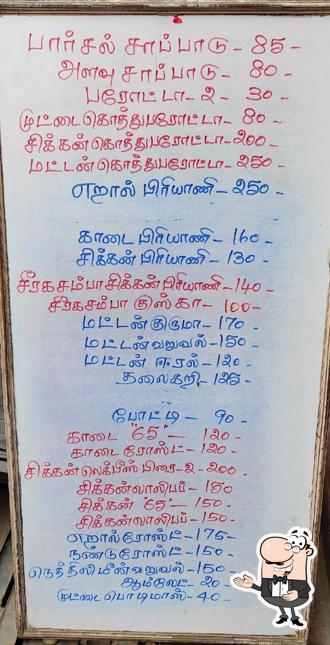 பார்சல் சாப்பாடு - 85 -
அளவு சாப்பாடு - 80 -
பரோட்டா - 2 - 30 -
முட்டை கொத்து பரோட்டா - 80 -
சிக்கன் கொத்து பரோட்டா - 200 -
மட்டன் கொத்து பரோட்டா - 250 -
எறால் பிரியாணி - 250 -
காடை பிரியாணி - 160 -
சிக்கன் பிரியாணி - 130 -
சீரகசம்பா சிக்கன் பிரியாணி - 140 -
சீரகசம்பா குஸ்கா - 100 -
மட்டன் குருமா - 170 -
மட்டன் வறுவல் - 150 -
மட்டன் ஈரல் - 120 -
தலைகறி - 125 -
போட்டி - 90 -
காடை "65" - 120 -
காடை ரோஸ்ட் - 120 -
சிக்கன் லெக்பீஸ் - 2 - 200 -
சிக்கன் லாலிபப் - 150 -
சிக்கன் "65" - 150 -
சிக்கன் லாலிபப் - 150 -
எறால் ரோஸ்ட் - 175 -
நண்டு ரோஸ்ட் - 150 -
நெத்திலி மீன் வறுவல் - 150 -
ஆம்லேட் - 20 -
முட்டை பொடிமாஸ் - 40 -